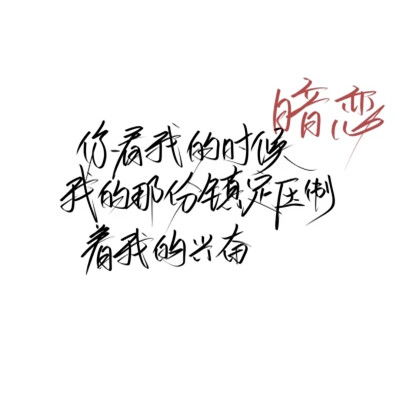 暗恋
你看我的时候
我的那份镇定压制
着我的兴奋